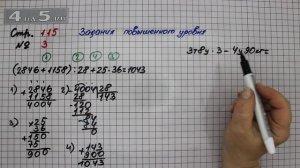 4 на 5.com
Стр. 115
Задания повышенного уровня
№ 3
1 2 4 3
(2846+1158):28+25·36=1043
3т8ц·3-4ц90кг=
1) +2846
1158
4004
2) 4004 28
28 143
120
112
84
84
0
3) ×25
36
150
75
900
4) +143
900
1043